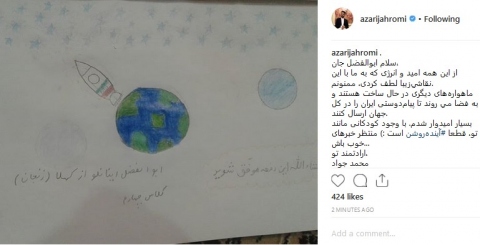 azarijahromi • Following
azarijahromi .
سلام ابوالفضل جان.
از این همه امید و انرژی که به ما با این
نقاشی‌زیبا لطف کردی، ممنونم.
ماهواره‌های دیگری در حال ساخت هستند و
به فضا می روند تا پیام‌دوستی ایران را در کل
جهان ارسال کنند.
بسیار امیدوار شدم. با وجود کودکانی مانند
تو، قطعا #آینده‌روشن است :) منتظر خبرهای
خوب باش...
ارادتمند تو.
محمد جواد
424 likes
2 MINUTES AGO
Add a comment...
موفق شوید
ابوالفضل
از
کلاس چهارم